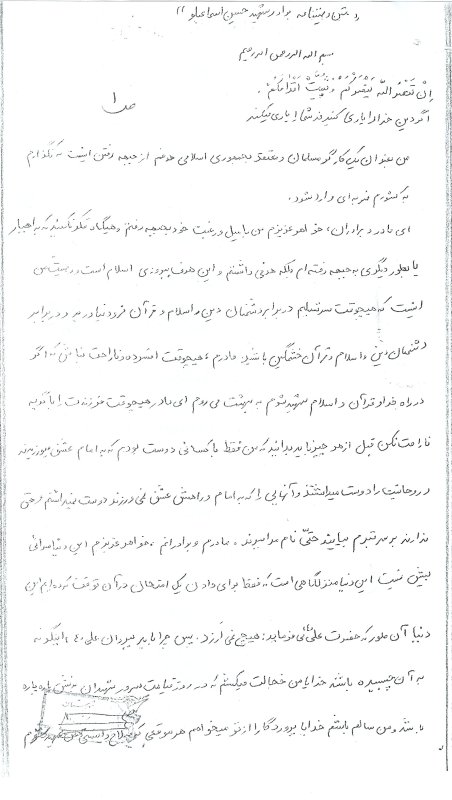 متن وصیتنامه برادر شهید حسین اسماعیلو
بسم الله الرحمن الرحیم
اِنْ تَنْصُرُ اللّهَ یَنْصُرْکُمْ وَ یُثَبِّتْ اَقْدامَکُمْ.
ص ۱
اگر دین خدا را یاری کنید خدا شما را یاری میکند
من بعنوان یک کارگر مسلمان و معتقد به جمهوری اسلامی هدفم از جبهه رفتن اینست که نگذارم
به کشورم ضربه ای وارد شود.
ای مادر و برادران، خواهر عزیزم من با میل و رغبت خود بجبهه رفتم و هیچگاه فکر نکنید که به اجبار
یا بطور دیگری به جبهه رفته ام بلکه هدفی داشتم و این هدف پیروزی اسلام است و وصیت من
اینست که هیچوقت سر تسلیم در برابر دشمنان دین و اسلام و قرآن فرود نیاورید و در برابر
دشمنان دین و اسلام و قرآن خشمگین باشید. مادرم، هیچوقت افسرده و ناراحت نباش که اگر
در راه خدا و قرآن و اسلام شهید شوم به بهشت می روم ای مادر هیچوقت فرزندت را با گریه
ناراحت نکن قبل از هر چیز باید بدانید که من فقط با کسانی دوست بودم که به امام عشق میورزیدند
و روحانیت را دوست میداشتند و آنهایی را که به امام و راهش عشق نمی ورزند دوست نمیداشتم و حق
ندارند بر سر قبرم بیایند حتّی نام مرا ببرند، مادرم و برادرانم، خواهر عزیزم این دنیا سرائی
بیش نیست این دنیا منزلگاهی است که فقط برای دادن یک امتحان در آن توقف کرده ایم این
دنیا آن طور که حضرت علی (ع) می فرماید: هیچ نمی اَرزد. پس چرا باید پیروان علی (ع) اینگونه
به آن چسبیده باشند خدایا من خجالت میکشم که در روز قیامت سرور شهیدان بدنش پاره پاره
باشد و من سالم باشم خدایا پروردگارا از تو میخواهم هر موقعی که